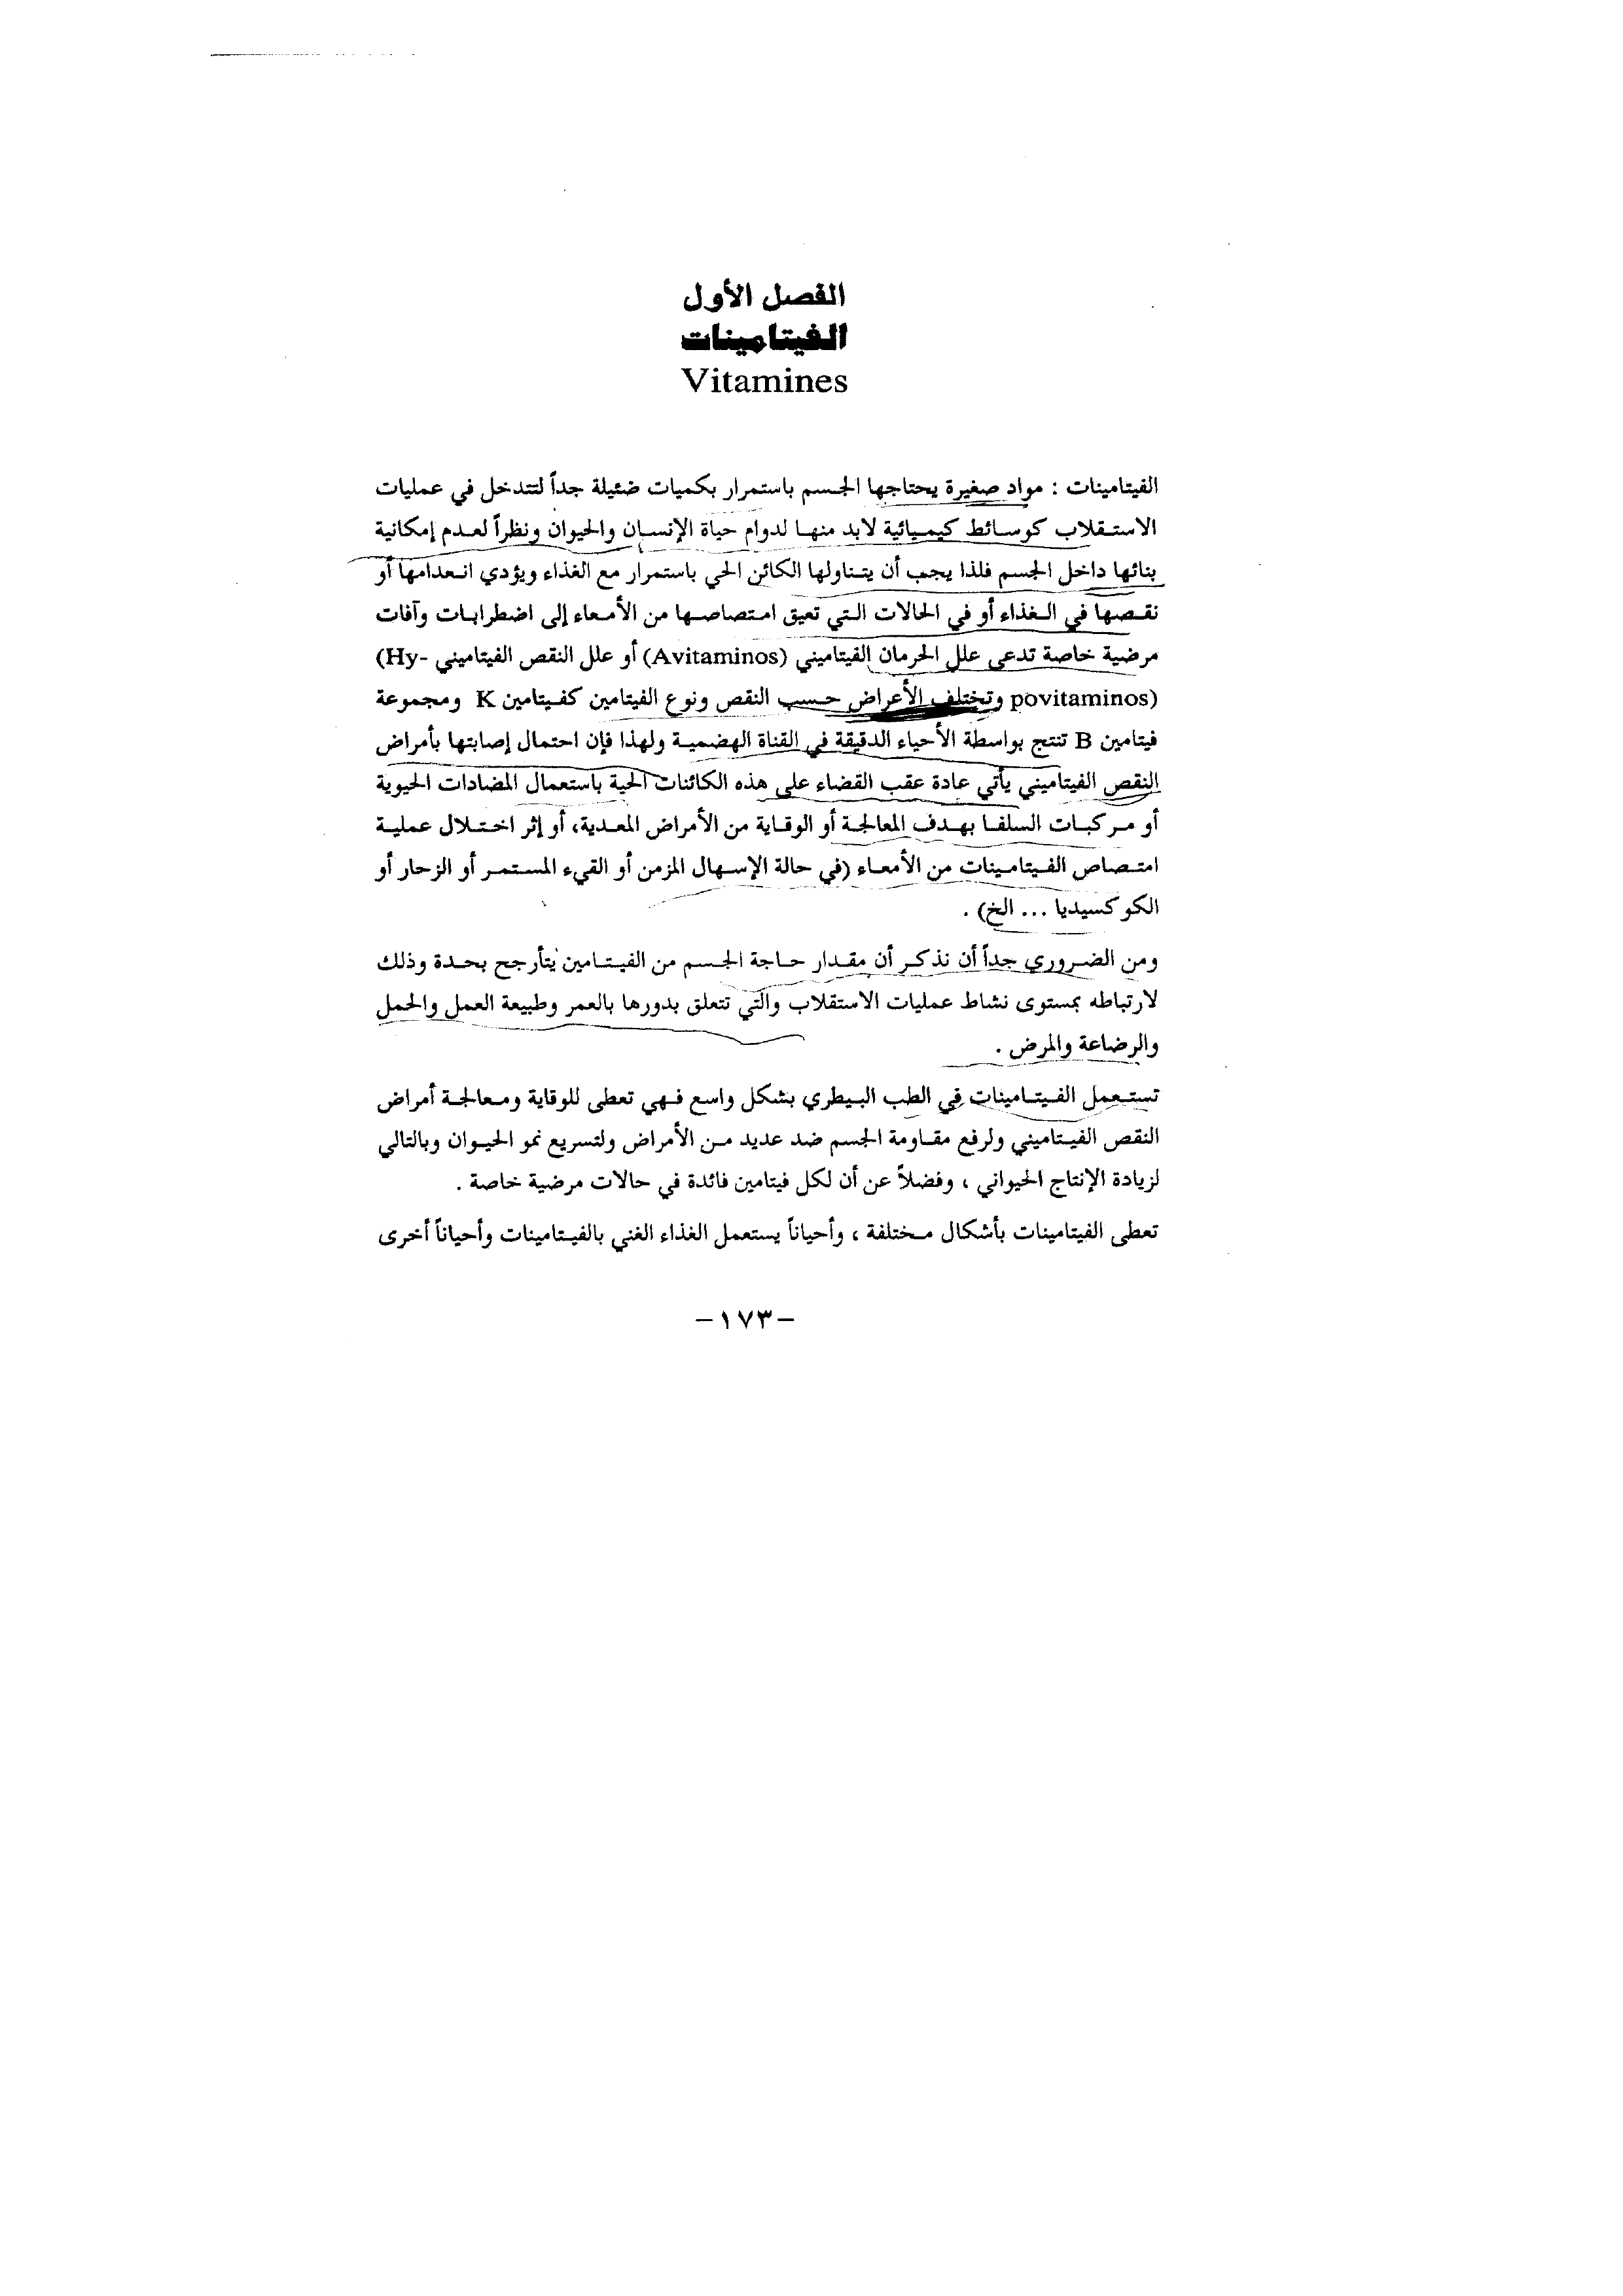 الفصل الأول
الفيتامينات
Vitamines
الفيتامينات : مواد صغيرة يحتاجها الجسم باستمرار بكميات ضئيلة جداً لتتدخل في عمليات
الاستقلاب كوسائط كيميائية لابد منها لدوام حياة الإنسان والحيوان ونظراً لعدم إمكانية
بنائها داخل الجسم فلذا يجب أن يتناولها الكائن الحي باستمرار مع الغذاء ويؤدي انعدامها أو
نقصها في الغذاء أو في الحالات التي تعيق امتصاصها من الأمعاء إلى اضطرابات وآفات
مرضية خاصة تدعى علل الحرمان الفيتاميني (Avitaminos) أو علل النقص الفيتاميني (Hy-
povitaminos) وتختلف الأعراض حسب النقص ونوع الفيتامين كفيتامين K ومجموعة
فيتامين B تنتج بواسطة الأحياء الدقيقة في القناة الهضمية ولهذا فإن احتمال إصابتها بأمراض
النقص الفيتاميني يأتي عادة عقب القضاء على هذه الكائنات الحية باستعمال المضادات الحيوية
أو مركبات السلفا بهدف المعالجة أو الوقاية من الأمراض المعدية، أو إثر اختلال عملية
امتصاص الفيتامينات من الأمعاء (في حالة الإسهال المزمن أو القيء المستمر أو الزحار أو
الكوكسيديا ... الخ) .
ومن الضروري جداً أن نذكر أن مقدار حاجة الجسم من الفيتامين يتأرجح بحدة وذلك
لارتباطه بمستوى نشاط عمليات الاستقلاب والتي تتعلق بدورها بالعمر وطبيعة العمل والحمل
والرضاعة والمرض .
تستعمل الفيتامينات في الطب البيطري بشكل واسع فهي تعطى للوقاية ومعالجة أمراض
النقص الفيتاميني ولرفع مقاومة الجسم ضد عديد من الأمراض ولتسريع نمو الحيوان وبالتالي
لزيادة الإنتاج الحيواني ، وفضلاً عن أن لكل فيتامين فائدة في حالات مرضية خاصة .
تعطى الفيتامينات بأشكال مختلفة ، وأحياناً يستعمل الغذاء الغني بالفيتامينات وأحياناً أخرى
-١٧٣-